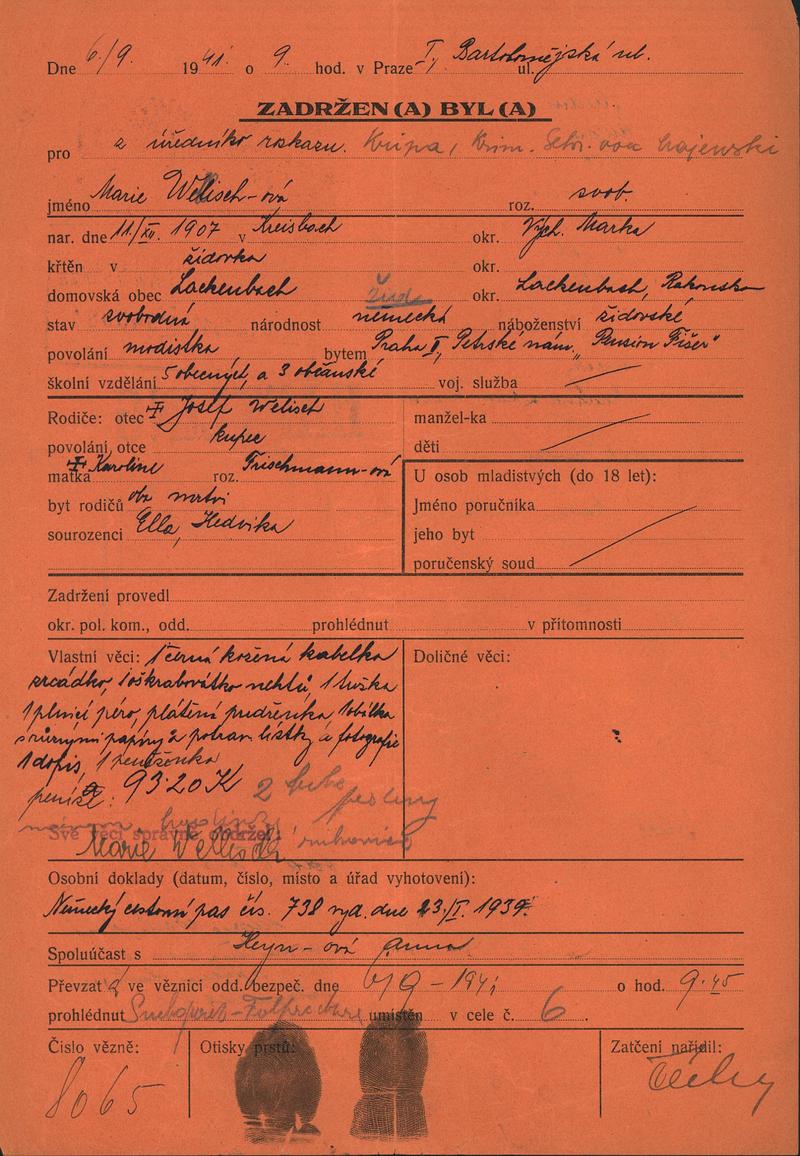 Dne 6/9. 1941. o 9. hod. v Praze I, Bartolomějská ul. ul.
ZADRŽEN(A) BYL(A)
pro z úředního rozkazu. Krupa, Krim. Sekr.
jméno Marie Welisch-ová roz. svob.
nar. dne 11./XII. 1907 v Kreisbach okr. Vých. Marka
křtěn v židovka okr.
domovská obec Lackenbach Žid okr. Lackenbach, Rakousko
stav svobodná národnost německá náboženství židovské
povolání modistka bytem Praha II, Petrské nám. „Pension Fišer"
školní vzdělání 5 obecných, a 3 občanské voj. služba
Rodiče: otec Josef Welisch
povolání otce kupec
matka Karoline roz. Frischmann-ová
byt rodičů oba mrtvi
sourozenci Ella, Hedvika
manžel-ka
děti
U osob mladistvých (do 18 let):
Jméno poručníka
jeho byt
poručenský soud
Zadržení provedl
okr. pol. kom., odd. prohlédnut v přítomnosti
Vlastní věci: 1 černá kožená kabelka
zrcádko, 1 oškrabovátko nehtů, 1 tužka
1 plnicí péro, plátěná pudřenka, 1 obálka
s různými papíry 2 potrav. lístky a fotografie
1 dopis, 1 peněženka
peníze: 93·20 K 2
Své věci správně obdržel:
Marie Welisch
Doličné věci:
Osobní doklady (datum, číslo, místo a úřad vyhotovení):
Německý cestovní pas čís. 738 vyd. dne 23./I. 1939.
Spoluúčast s Heyn-ová Anna
Převzat a ve věznici odd. bezpeč. dne 6/9 - 1941 o hod. 9·45
prohlédnut umístěn v cele č. 6.
Číslo vězně: Otisky prstů: Zatčení nařídil:
8065